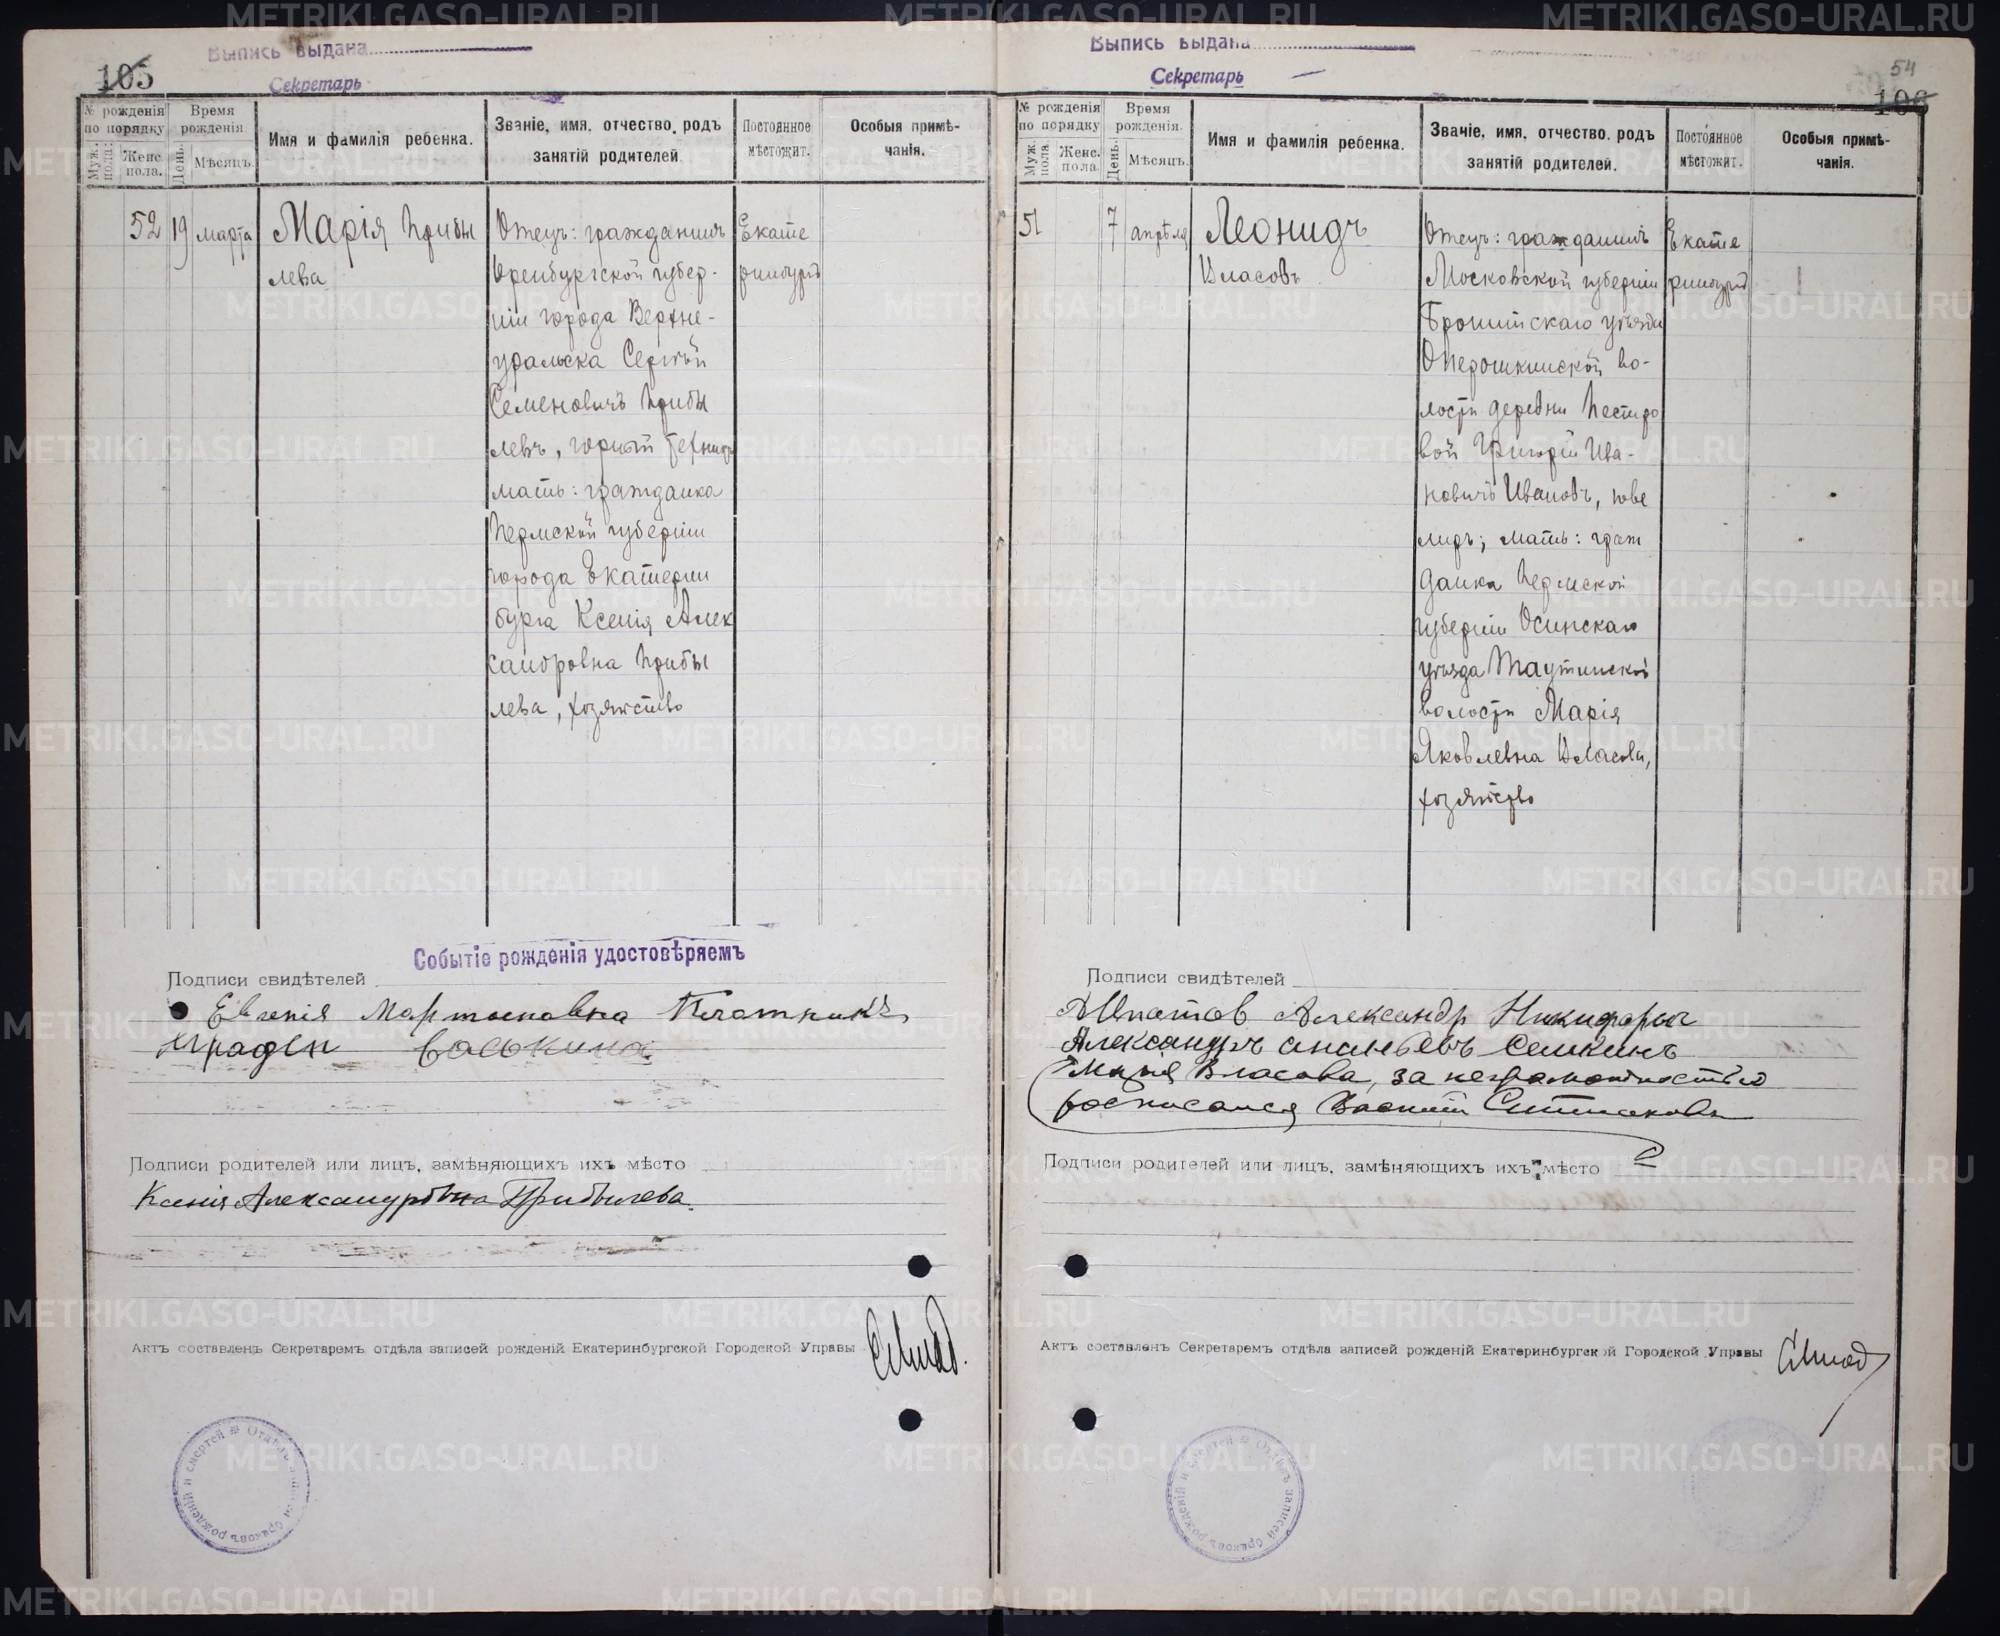 Выпись выдана
Секретарь
105
№ рожденія по порядку
Муж. пола.
Женс. пола.
Время рожденія
День.
Мѣсяцъ.
Имя и фамилія ребенка.
Званіе, имя, отчество, родъ занятій родителей
Постоянное мѣстожит.
Особыя примѣчанія.
52 19 марта
Марія Прибы
лева
Отецъ: гражданинъ
Оренбургской губер-
ніи города Верхне-
уральска Сергѣй
Семеновичъ Прибы
левъ, горный техникъ
мать: гражданка
Пермской губерніи
города Екатерин
бурга Ксенія Алек
сандровна Прибы
лева, хозяйство
Екате
ринбургъ
Событіе рожденія удостовѣряемъ
Подписи свидѣтелей
Евгенія Мартыновна
Васькина
Подписи родителей или лицъ, замѣняющихъ ихъ мѣсто
Ксенія Александровна Прибылева.
Актъ составленъ Секретаремъ отдѣла записей рожденій Екатеринбургской Городской Управы
Отдѣлъ записей браковъ рожденій и смертей
Выпись выдана
Секретарь
54
106
№ рожденія по порядку
Муж. пола.
Женс. пола.
Время рожденія.
День.
Мѣсяцъ.
Имя и фамилія ребенка.
Званіе, имя, отчество, родъ занятій родителей.
Постоянное мѣстожит.
Особыя примѣчанія.
51 7 апрѣля
Леонидъ
Власовъ
Отецъ: гражданинъ
Московской губерніи
уѣзда
во-
лости деревни
Григорій Ива-
новичъ Ивановъ, юве
лиръ; мать: граж
данка Пермской
губерніи Осинскаго
уѣзда
волости Марія
Яковлевна Власова,
хозяйство
Екате
ринбургъ
Подписи свидѣтелей
Александр
Александръ Ананьевъ Семкинъ
Марія Власова, за неграмотностью
росписался Василій
Подписи родителей или лицъ, замѣняющихъ ихъ мѣсто
Актъ составленъ Секретаремъ отдѣла записей рожденій Екатеринбургской Городской Управы
Отдѣлъ записей браковъ рожденій и смертей
METRIKI.GASO-URAL.RU